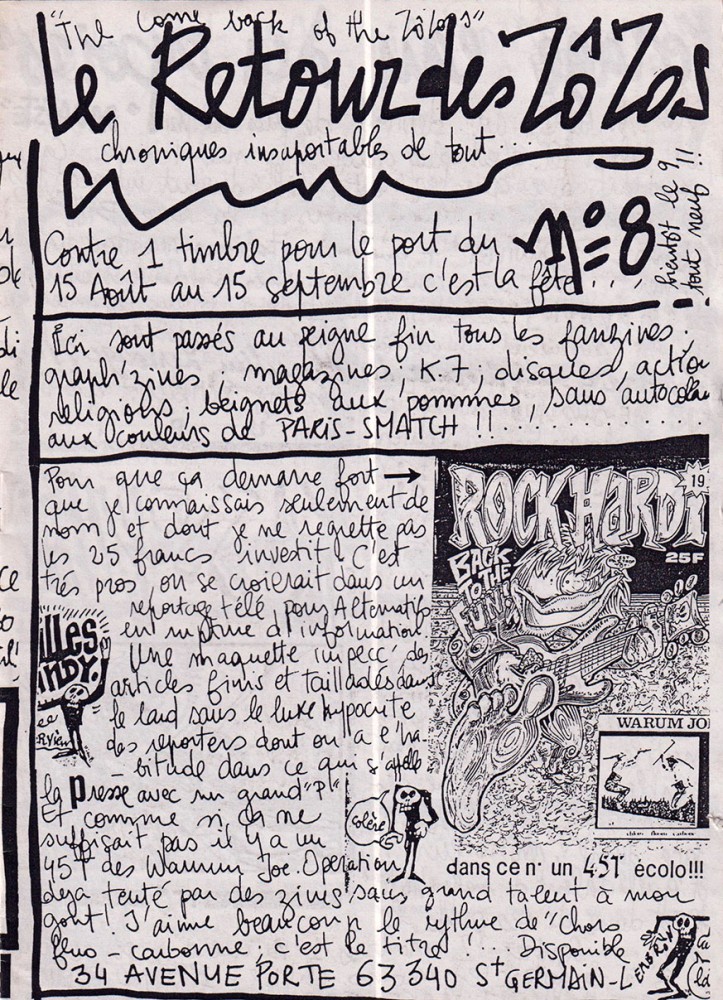 "The Come back of the Zôzos"
Le Retour des Zô Zos
chroniques insuportables de tout...
bientôt le 9
tout neuf !!
Contre 1 timbre pour le port du N°=8
15 Août au 15 septembre c'est la fête....
Ici sont passés au peigne fin tous les fanzines;
graph'zines; magazines; K.7; disques, action
religions; beignets aux pommes, sans autocolan
aux couleurs de PARIS-SMATCH !!..........
Pour que ça demarre fort →
que je connaissais seulement de
nom et dont je ne regrette pas
les 25 francs investit. C'est
très pros, on se croierait dans un
reportage télé pour Alternatifs
en rupture d'information.
Une maquette impecc' des
articles finis et tailladés dans
le lard sans le luxe hypocrite
des reporters dont on a l'ha
-bitude dans ce qui s'appelle
la Presse avec un grand "P"
Et comme si ça ne
suffisait pas il y a un
45T des Warum Joe. Operation
déja tenté par des zines sans grand talent à mon
gout! J'aime beaucoup le rythme de "chors
fluo-carbonne; c'est le titre!... Disponible
34 AVENUE PORTE 63340 St GERMAIN-L
ROCK HARDI
19
25F
BACK
TO THE
FUN!
WARUM JO
dans ce n° un 45T écolo!!!
illes
INDY.
Colère